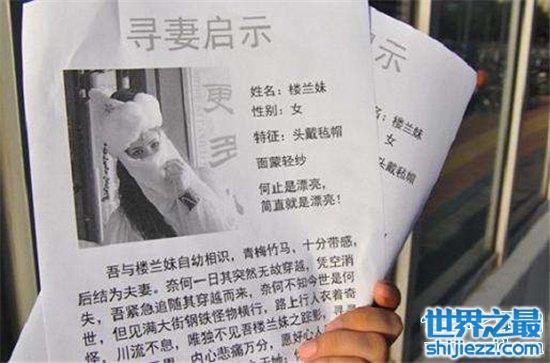 寻妻启示
更
多
姓名：楼兰妹
性别：女
特征：头戴毡帽
面蒙轻纱
何止是漂亮，
简直就是漂亮！
吾与楼兰妹自幼相识，青梅竹马，十分带感，
后结为夫妻。奈何一日其突然无故穿越，凭空消
失，吾紧急追随其穿越而来，奈何不知今世是何
世，但见满大街钢铁怪物横行，路上行人衣着奇
怪，川流不息，唯独不见吾楼兰妹之踪影，寻
内心悲痛万分，愿好心人
启示
姓名：楼兰妹
女
头戴毡帽
世界之最
shijiezzl.com